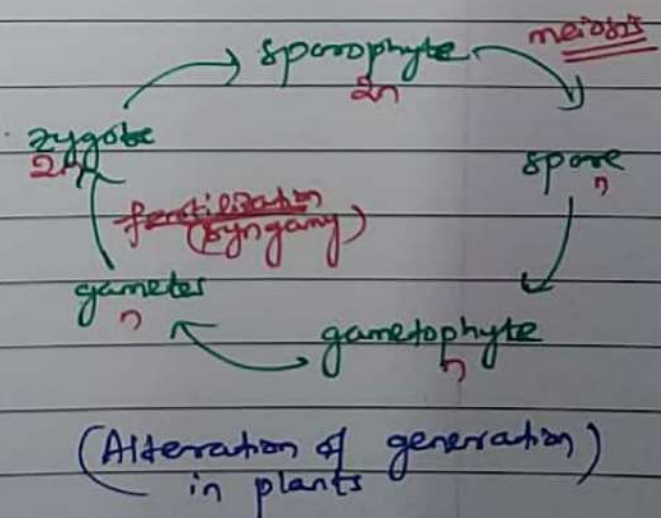 sporophyte
2n
meiosis
zygote
2n
spore
n
fertilization
(syngamy)
gametes
n
gametophyte
n
(Alteration of generation)
in plants